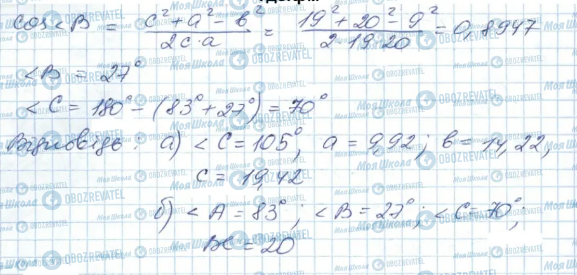 cos<B = (c² + a² - b²)/(2c·a) = (19² + 20² - 9²)/(2·19·20) = 0,8947
<B = 27°
<C = 180° - (83° + 27°) = 70°
Відповідь: а) <C = 105°, a = 9,92; b = 14,22,
c = 19,42
б) <A = 83°; <B = 27°; <C = 70°;
BC = 20